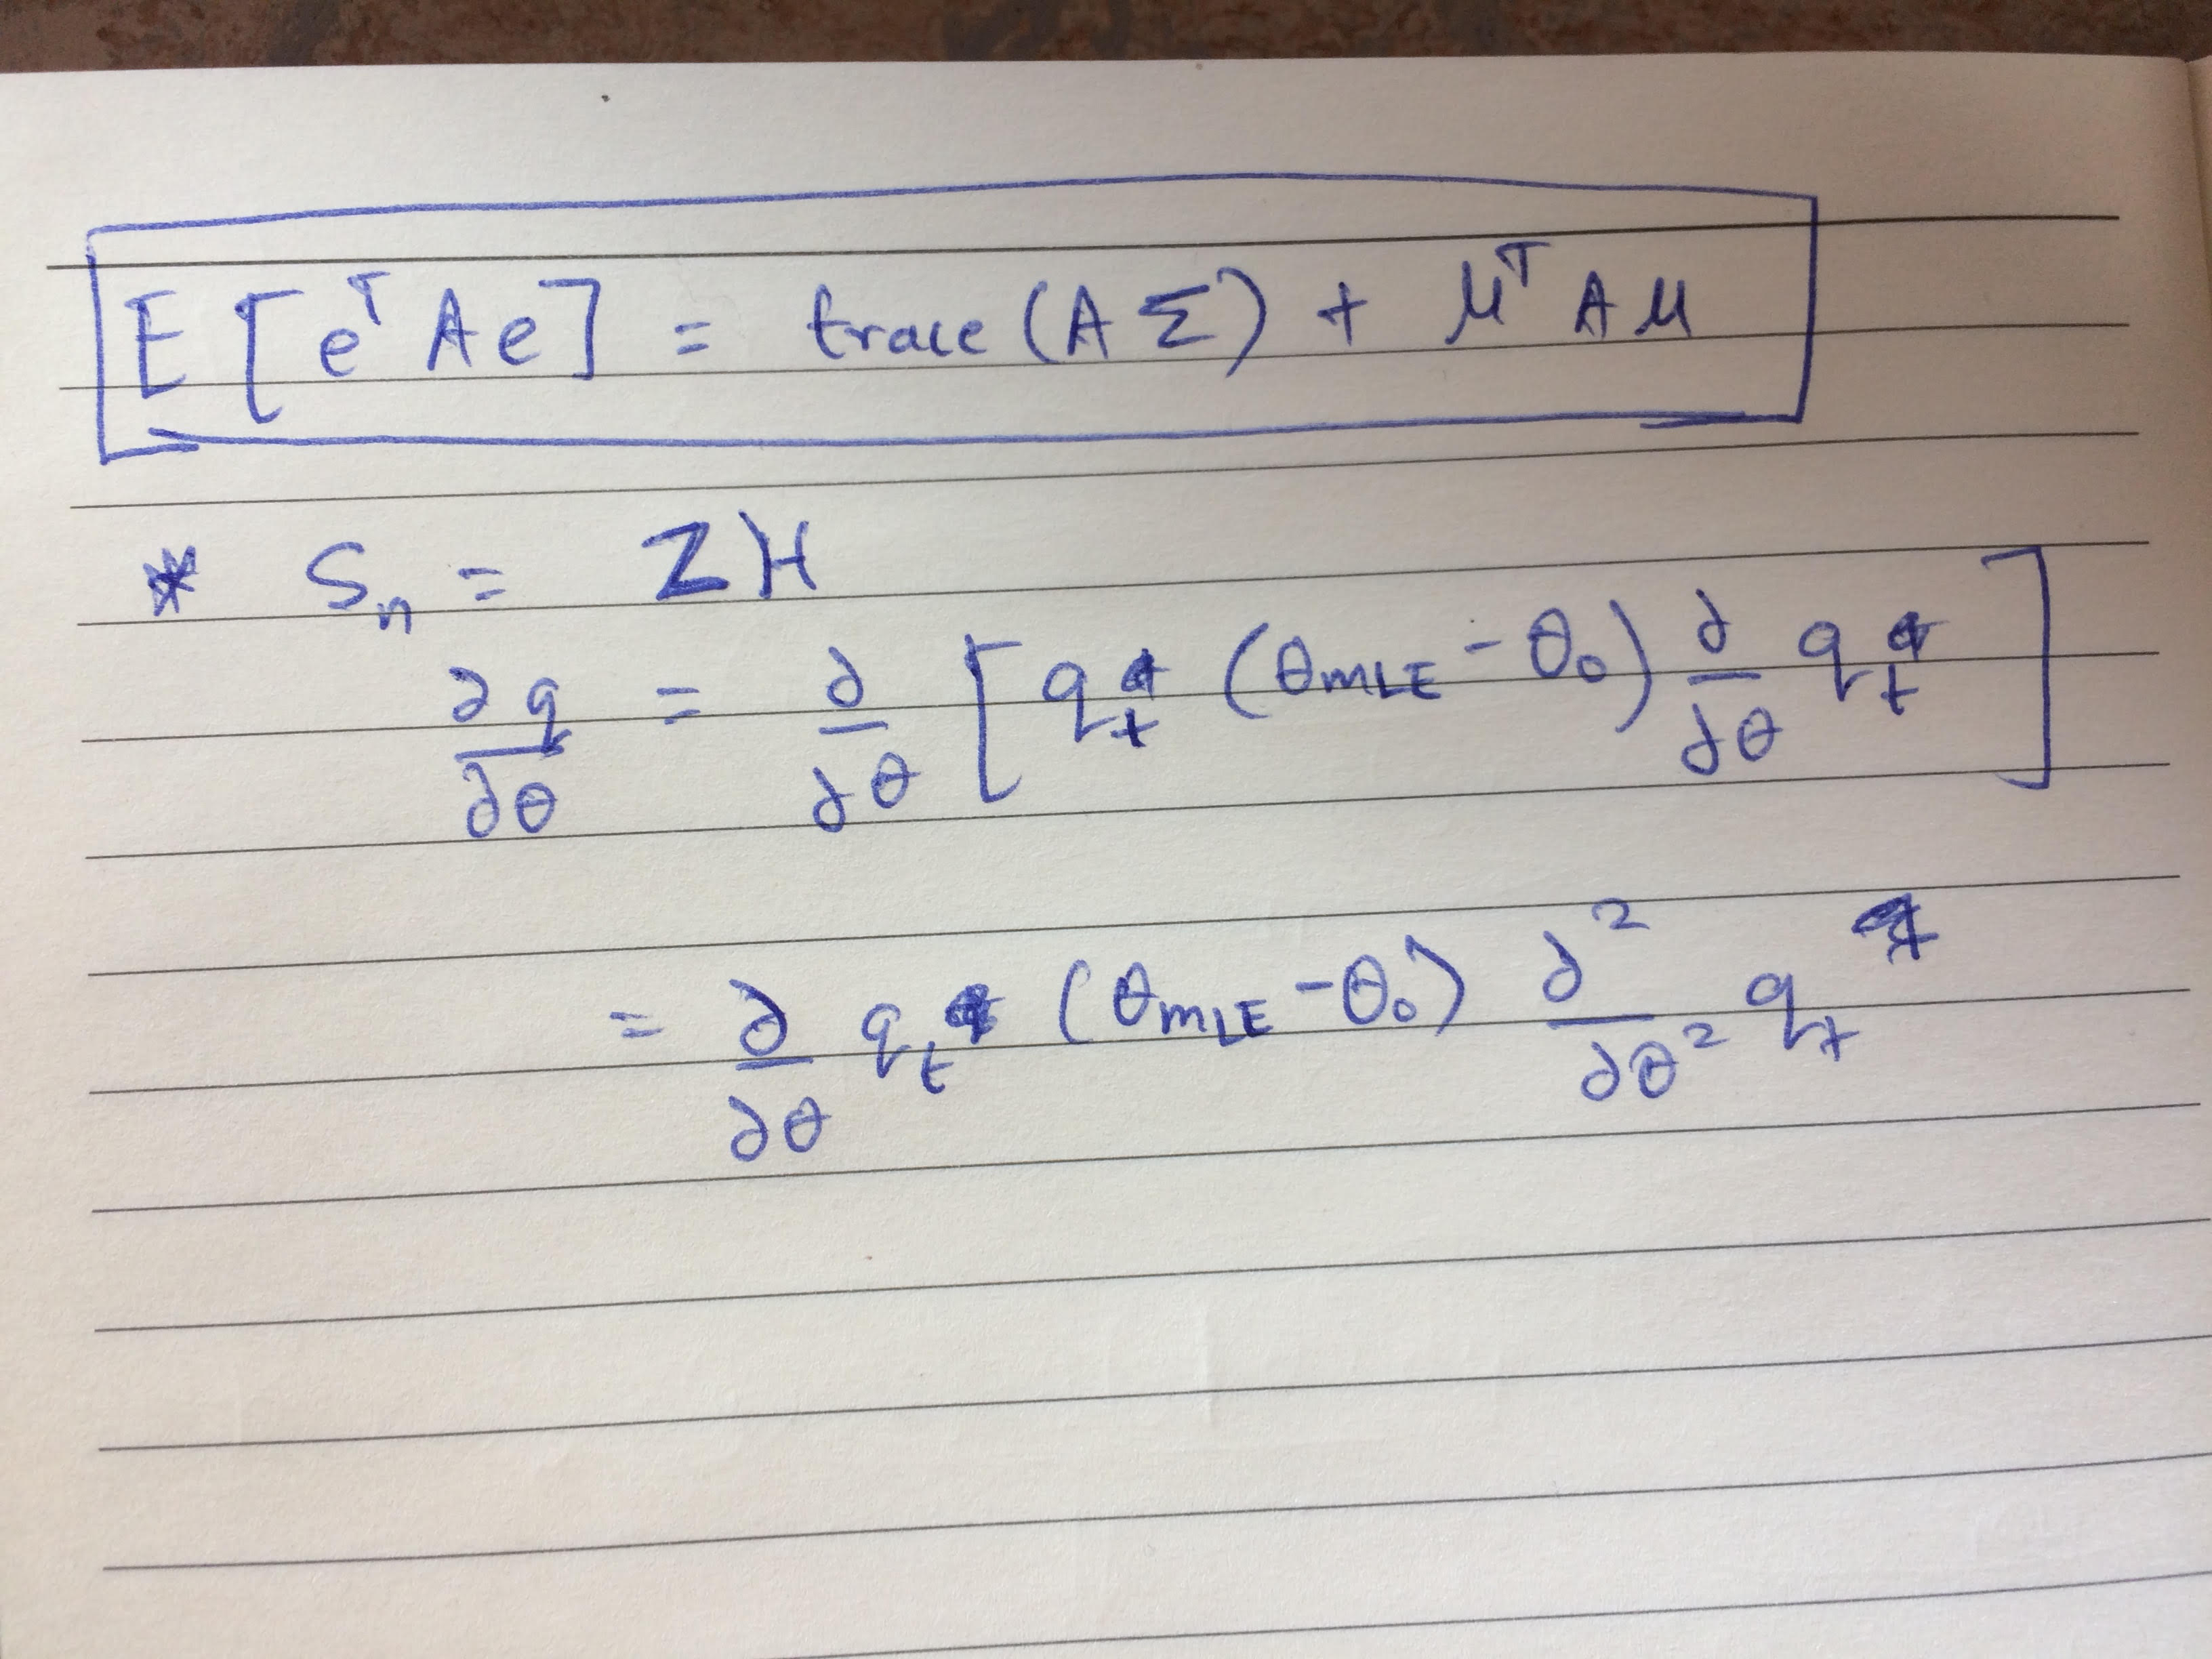 E [eᵀ A e] = trace (A Σ) + μᵀ A μ
* Sₙ = ZH
∂q/∂θ = ∂/∂θ [ qₜ (θMLE - θ₀) ∂/∂θ qₜ ]
= ∂/∂θ qₜ (θMLE - θ₀) ∂²/∂θ² qₜ